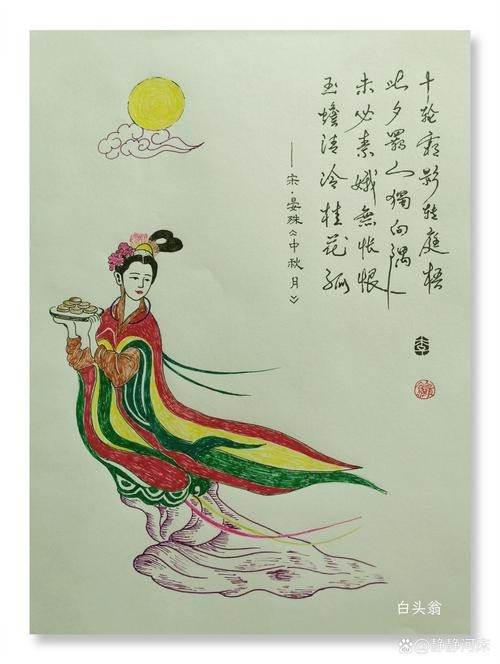 十轮霜影转庭梧
此夕羁人獨向隅
未必素娥無怅恨
玉蟾清冷桂花孤
——宋·晏殊《中秋月》
白头翁
@静静河床